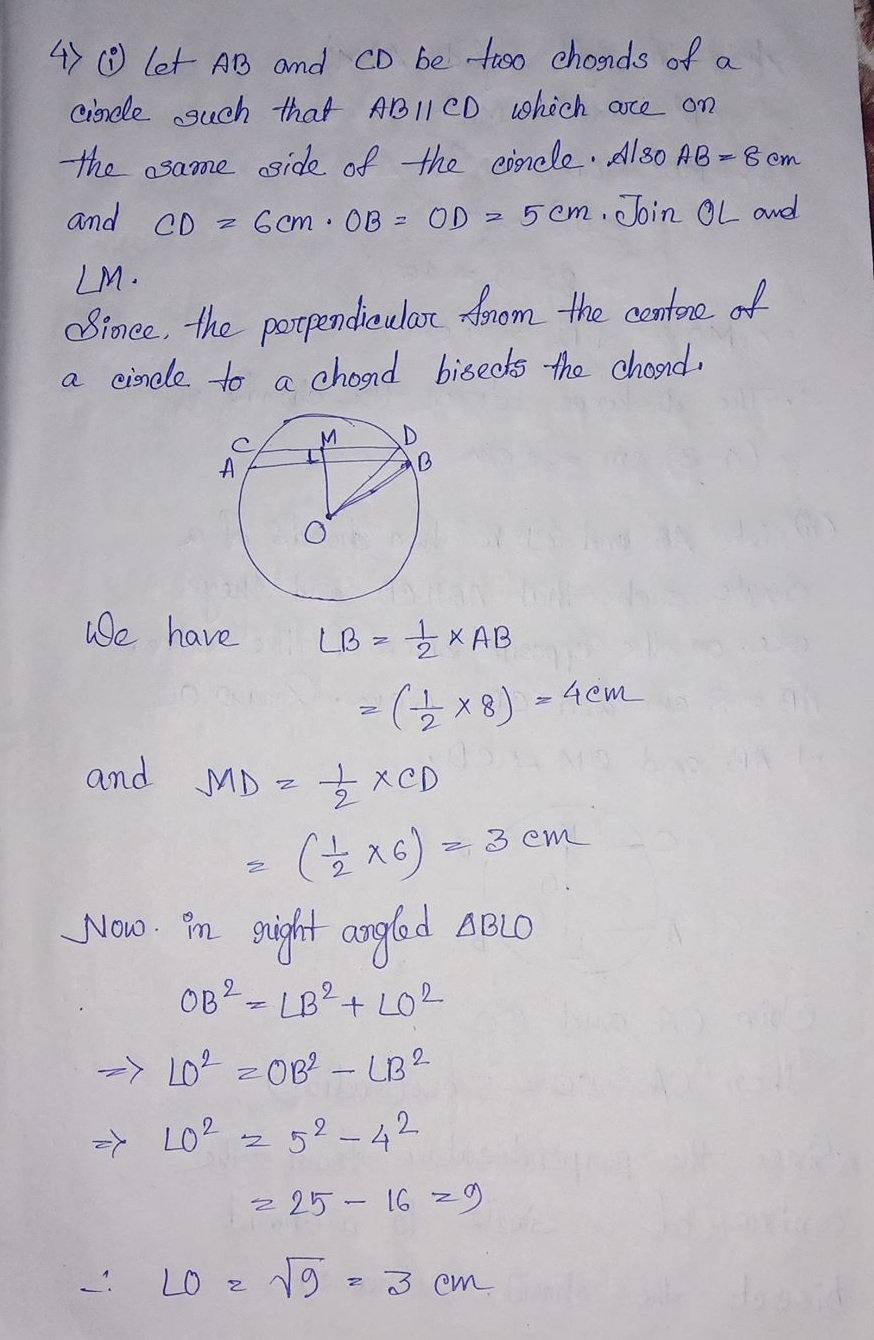 4) (i) Let AB and CD be two chords of a
circle such that AB || CD which are on
the same side of the circle. Also AB = 8 cm
and CD = 6cm. OB = OD = 5 cm. Join OL and
LM.
Since, the perpendicular from the centre of
a circle to a chord bisects the chord.
C M D
A L B
O
We have LB = 1/2 × AB
= (1/2 × 8) = 4cm
and MD = 1/2 × CD
= (1/2 × 6) = 3 cm
Now. in right angled ΔBLO
OB² = LB² + LO²
=> LO² = OB² - LB²
=> LO² = 5² - 4²
= 25 - 16 = 9
∴ LO = √9 = 3 cm